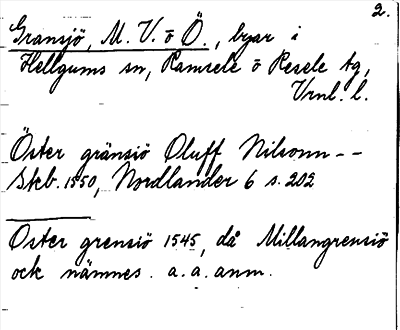 2.
Gransjö, M. V. o Ö., byar i
Hellgums sn, Ramsele o Resele tg,
Vrnl. l.
Öster gränsiö Oluff Nilsonn - -
Skb. 1550, Nordlander 6 s. 202
Öster grensiö 1545, då Millangrensiö
ock nämnes. a. a. anm.